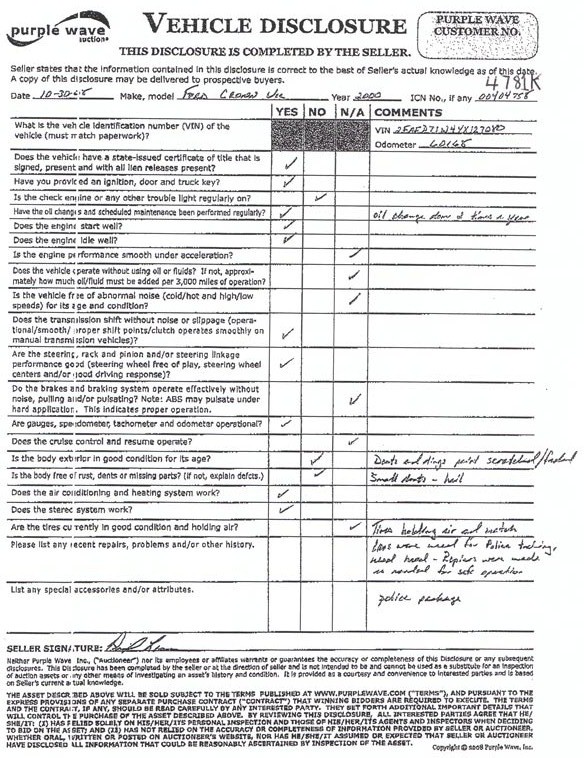 purple wave
auction
VEHICLE DISCLOSURE
THIS DISCLOSURE IS COMPLETED BY THE SELLER.
PURPLE WAVE
CUSTOMER NO.
4781K
Seller states that the information contained in this disclosure is correct to the best of Seller's actual knowledge as of this date.
A copy of this disclosure may be delivered to prospective buyers.
Date 10-30- Make, model Ford Crown Vic Year 2000 ICN No., if any 00404758
YES NO N/A COMMENTS
What is the vehicle identification number (VIN) of the
vehicle (must match paperwork)?
VIN
Odometer 60168
Does the vehicle have a state-issued certificate of title that is
signed, present and with all lien releases present?
Have you provided an ignition, door and truck key?
Is the check engine or any other trouble light regularly on?
Have the oil changes and scheduled maintenance been performed regularly?
oil change done 2 times a year
Does the engine start well?
Does the engine idle well?
Is the engine performance smooth under acceleration?
Does the vehicle operate without using oil or fluids? If not, approxi-
mately how much oil/fluid must be added per 3,000 miles of operation?
Is the vehicle free of abnormal noise (cold/hot and high/low
speeds) for its age and condition?
Does the transmission shift without noise or slippage (opera-
tional/smooth/ proper shift points/clutch operates smoothly on
manual transmission vehicles)?
Are the steering, rack and pinion and/or steering linkage
performance good (steering wheel free of play, steering wheel
centers and/or good driving response)?
Do the brakes and braking system operate effectively without
noise, pulling and/or pulsating? Note: ABS may pulsate under
hard application. This indicates proper operation.
Are gauges, speedometer, tachometer and odometer operational?
Does the cruise control and resume operate?
Is the body exterior in good condition for its age?
Dents and dings paint scratched/faded
Is the body free of rust, dents or missing parts? (if not, explain defcts.)
Small dents - hail
Does the air conditioning and heating system work?
Does the stereo system work?
Are the tires currently in good condition and holding air?
Tires holding air and match
Please list any recent repairs, problems and/or other history.
Cars were used for Police training,
used hard - Repairs were made
as needed for safe operation
List any special accessories and/or attributes.
police package
SELLER SIGNATURE:
Neither Purple Wave Inc., ("Auctioneer") nor its employees or affiliates warrants or guarantees the accuracy or completeness of this Disclosure or any subsequent
disclosures. This Disclosure has been completed by the seller or at the direction of seller and is not intended to be and cannot be used as a substitute for an inspection
of auction assets or any other means of investigating an asset's history and condition. It is provided as a courtesy and convenience to interested parties and is based
on Seller's current actual knowledge.
THE ASSET DESCRIBED ABOVE WILL BE SOLD SUBJECT TO THE TERMS PUBLISHED AT WWW.PURPLEWAVE.COM ("TERMS"), AND PURSUANT TO THE
EXPRESS PROVISIONS OF ANY SEPARATE PURCHASE CONTRACT ("CONTRACT") THAT WINNING BIDDERS ARE REQUIRED TO EXECUTE. THE TERMS
AND THE CONTRACT, IF ANY, SHOULD BE READ CAREFULLY BY ANY INTERESTED PARTY. THEY SET FORTH ADDITIONAL IMPORTANT DETAILS THAT
WILL CONTROL THE PURCHASE OF THE ASSET DESCRIBED ABOVE. BY REVIEWING THIS DISCLOSURE, ALL INTERESTED PARTIES AGREE THAT HE/
SHE/IT: (I) HAS RELIED SOLELY ON HIS/HER/ITS PERSONAL INSPECTION AND THOSE OF HIS/HER/ITS AGENTS AND INSPECTORS WHEN DECIDING
TO BID ON THE ASSET; AND (II) HAS NOT RELIED ON THE ACCURACY OR COMPLETENESS OF INFORMATION PROVIDED BY SELLER OR AUCTIONEER,
WHETHER ORAL, WRITTEN OR POSTED ON AUCTIONEER'S WEBSITE, NOR HAS HE/SHE/IT ASSUMED OR EXPECTED THAT SELLER OR AUCTIONEER
HAVE DISCLOSED ALL INFORMATION THAT COULD BE REASONABLY ASCERTAINED BY INSPECTION OF THE ASSET.
Copyright © 2008 Purple Wave, Inc.